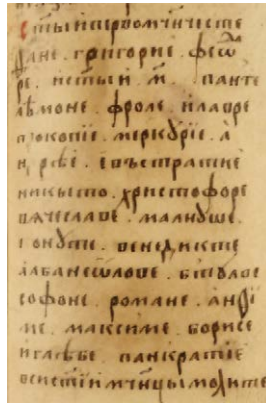 стꙑи первомч҃нче сте
фане . григорие . ѳеѡ
ре . и ст҃ꙑи м҃ . панте
лѣмоне . фроле . и лавре
прокопие . меркꙋрие . а
ндрѣе . еѵъстратие
никыто . христофоре
вячеславе . малнꙋше .
венедикте
албане
софоне . романе . анѳи
ме . максиме . борисе
и глѣбе . панкратие
вси ст҃ии мч҃нцы молите